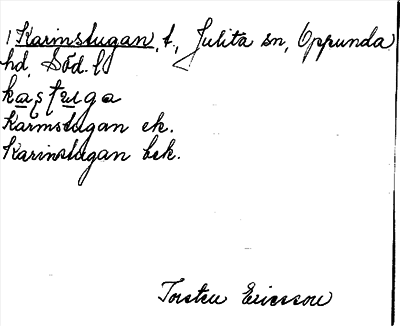 1 Karinstugan, t., Julita sn, Oppunda
hd, Söd. l.
kaṣtuga
Karmstugan ek.
Karinstugan bek.
Torsten Ericsson